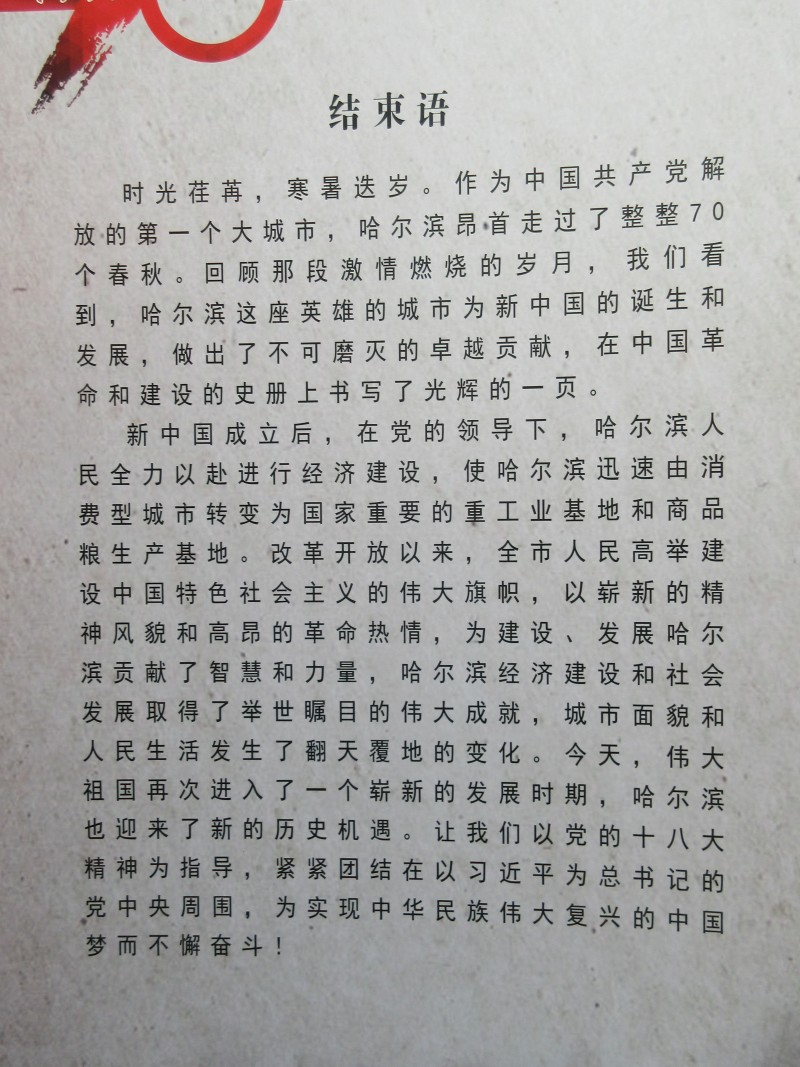 结束语
时光荏苒，寒暑迭岁。作为中国共产党解
放的第一个大城市，哈尔滨昂首走过了整整70
个春秋。回顾那段激情燃烧的岁月，我们看
到，哈尔滨这座英雄的城市为新中国的诞生和
发展，做出了不可磨灭的卓越贡献，在中国革
命和建设的史册上书写了光辉的一页。
新中国成立后，在党的领导下，哈尔滨人
民全力以赴进行经济建设，使哈尔滨迅速由消
费型城市转变为国家重要的重工业基地和商品
粮生产基地。改革开放以来，全市人民高举建
设中国特色社会主义的伟大旗帜，以崭新的精
神风貌和高昂的革命热情，为建设、发展哈尔
滨贡献了智慧和力量，哈尔滨经济建设和社会
发展取得了举世瞩目的伟大成就，城市面貌和
人民生活发生了翻天覆地的变化。今天，伟大
祖国再次进入了一个崭新的发展时期，哈尔滨
也迎来了新的历史机遇。让我们以党的十八大
精神为指导，紧紧团结在以习近平为总书记的
党中央周围，为实现中华民族伟大复兴的中国
梦而不懈奋斗！